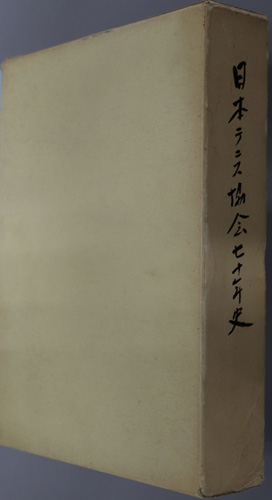 日本テニス協会七十年史